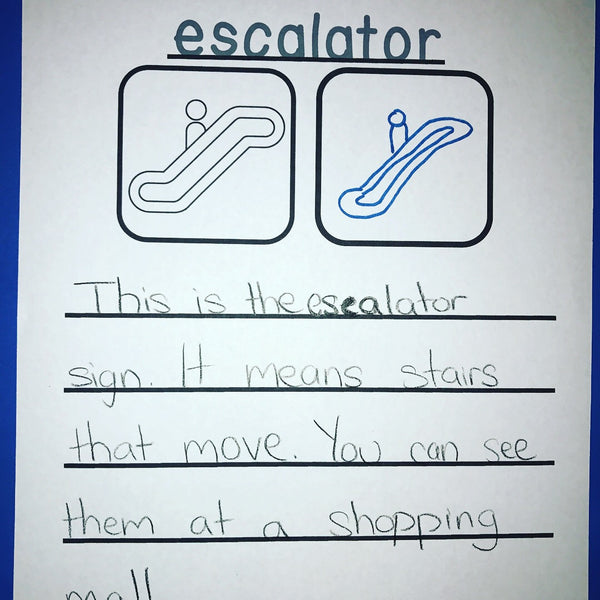 escalator
This is the escalator
sign. It means stairs
that move. You can see
them at a shopping
mall